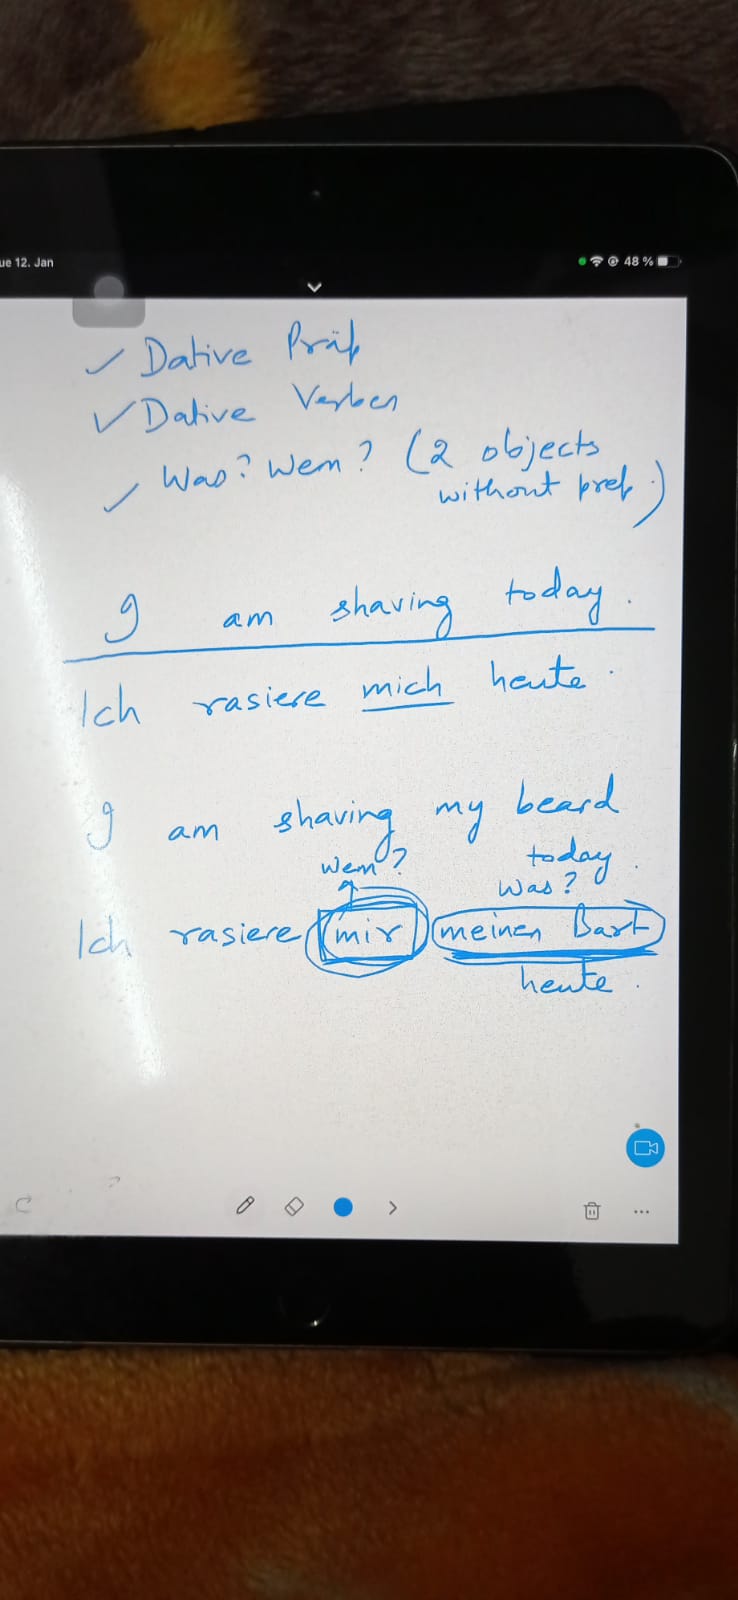 ue 12. Jan
48 %
✓ Dative Präp
✓ Dative Verben
✓ Was? Wem? (2 objects
without prep.)
I am shaving today.
Ich rasiere mich heute.
I am shaving my beard
today.
wem?
was?
Ich rasiere mir meinen Bart
heute.